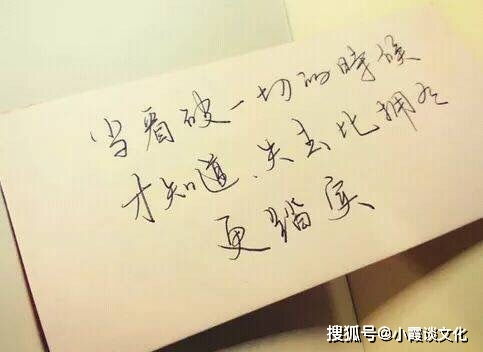 当看破一切的时候
才知道、失去比拥有
更踏实
搜狐号@小霞谈文化